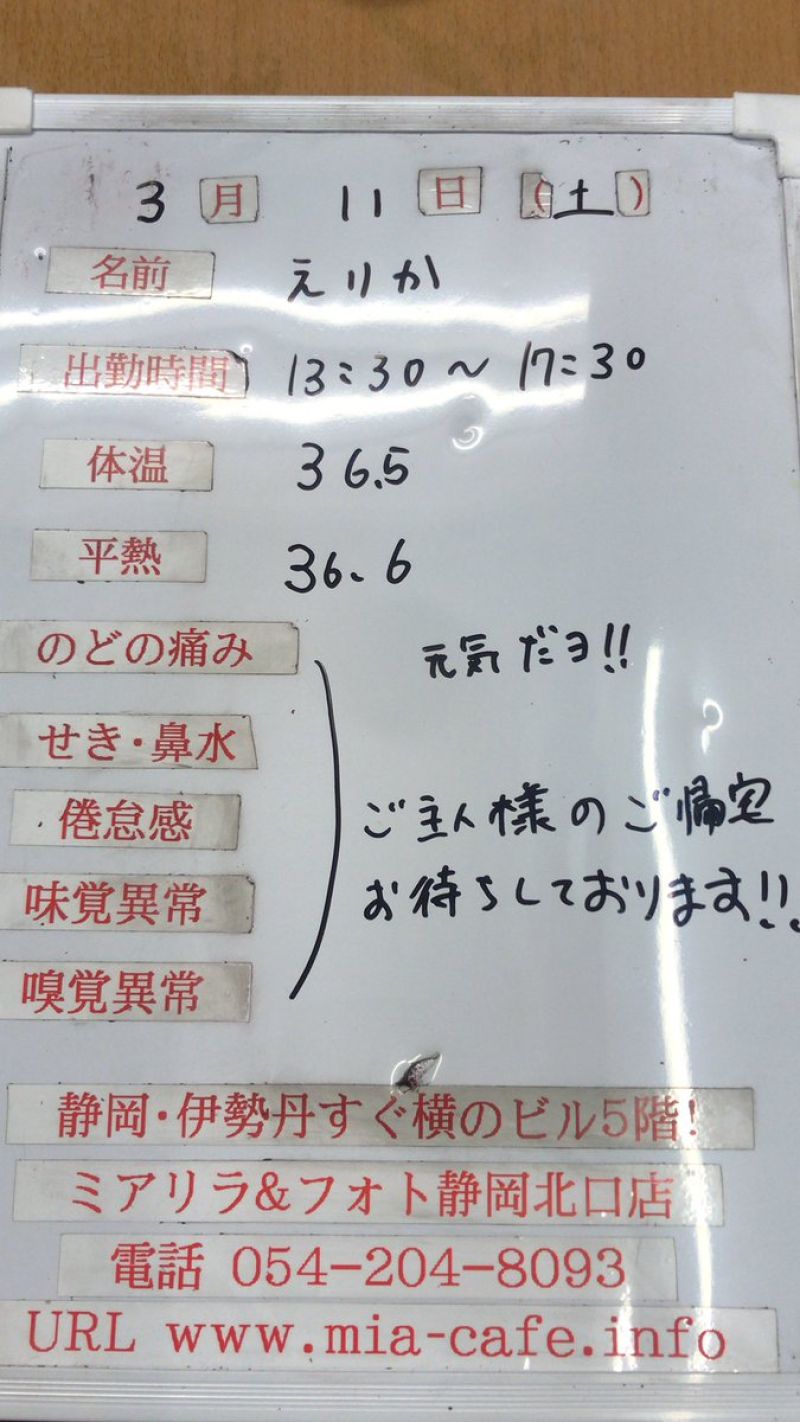 3月 11日(土)
名前 えりか
出勤時間 13:30～17:30
体温 36.5
平熱 36.6
のどの痛み 元気だヨ!!
せき・鼻水
倦怠感 ご主人様のご帰宅
味覚異常 お待ちしております!!
嗅覚異常
静岡・伊勢丹すぐ横のビル5階!
ミアリラ&フォト静岡北口店
電話 054-204-8093
URL www.mia-cafe.info